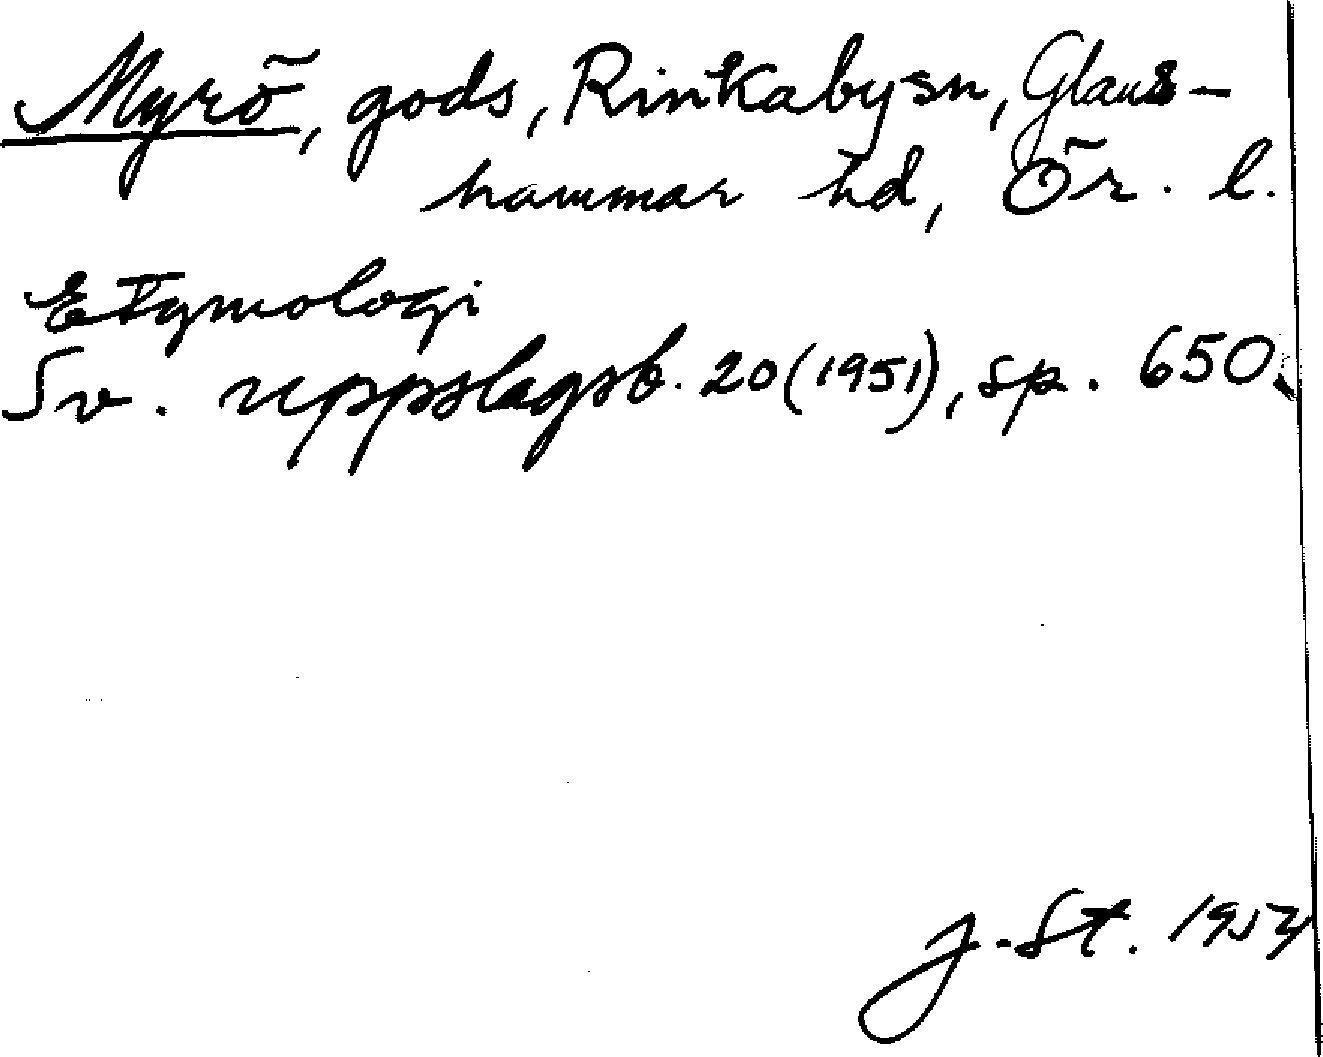 Myrö, gods, Rinkabysn, Glans-
hammar hd, Ör. l.
Etymologi
Sv. uppslagsb. 20 (1951), sp. 650.
J. St. 1957